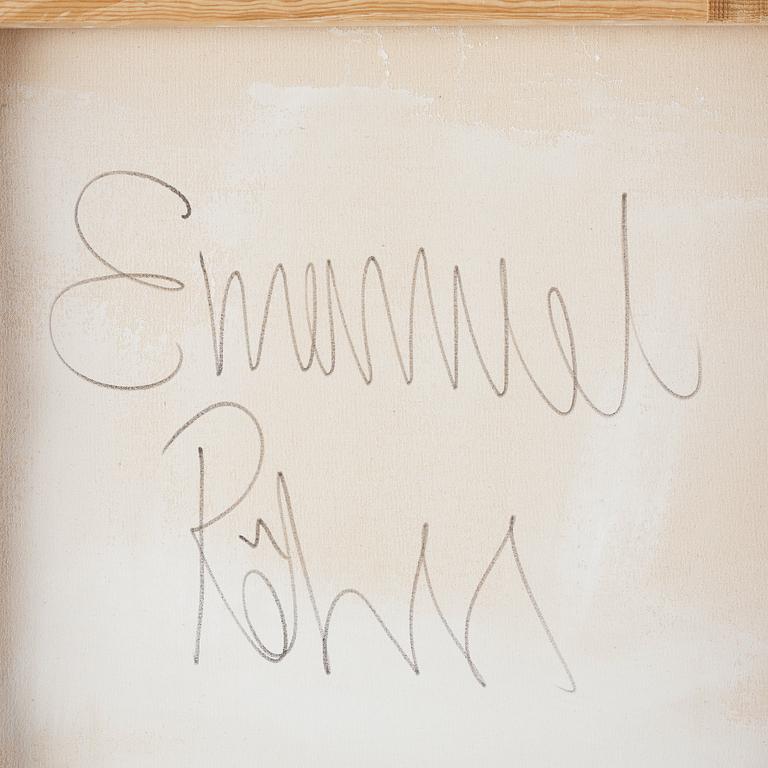 Emanuel
Röhss